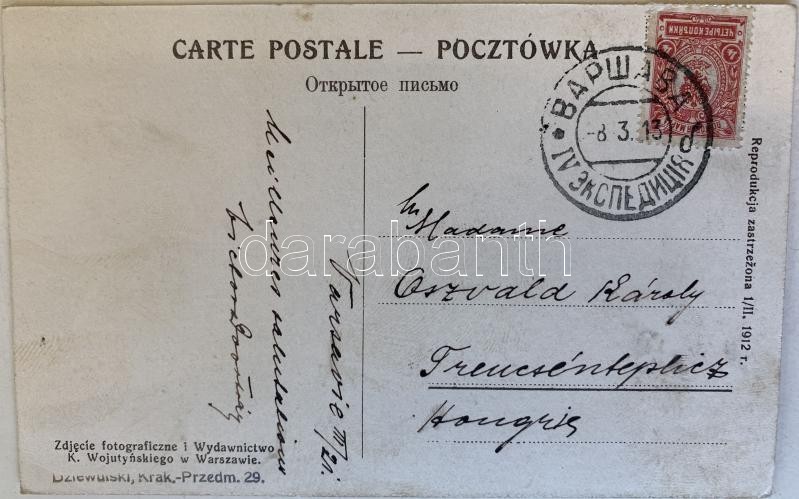 CARTE POSTALE — POCZTÓWKA
Открытое письмо
ЧЕТЫРЕ КОПѢЙКИ
4
4
ВАРШАВА
-8.3.13
IV ЭКСПЕДИЦІЯ
Meilleures salutations
Varsovie III/21.
Madame
Oszvald Károly
Trencsénteplicz
Hongrie
Reprodukcja zastrzeżona 1/II. 1912 r.
Zdjęcie fotograficzne i Wydawnictwo
K. Wojutyńskiego w Warszawie.
Dziewulski, Krak.-Przedm. 29.
darabanth